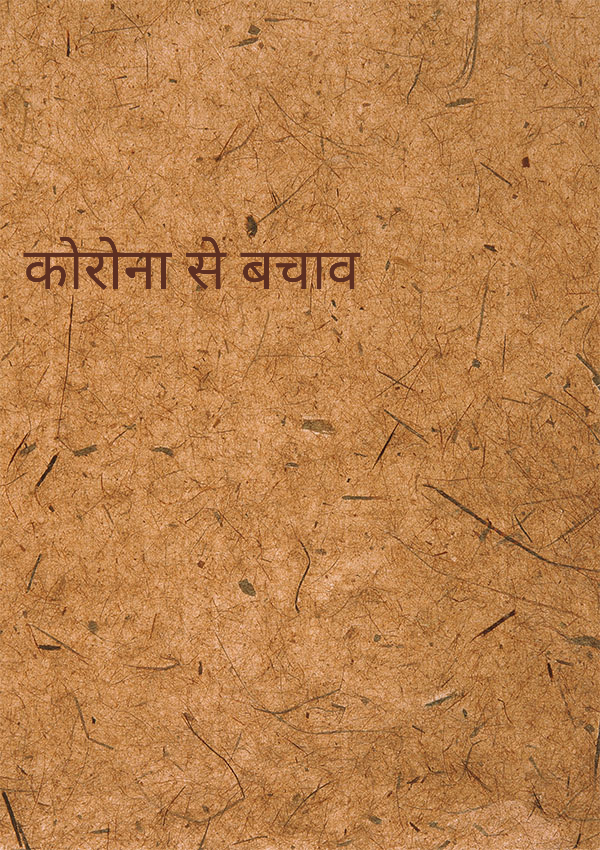 कोरोना से बचाव